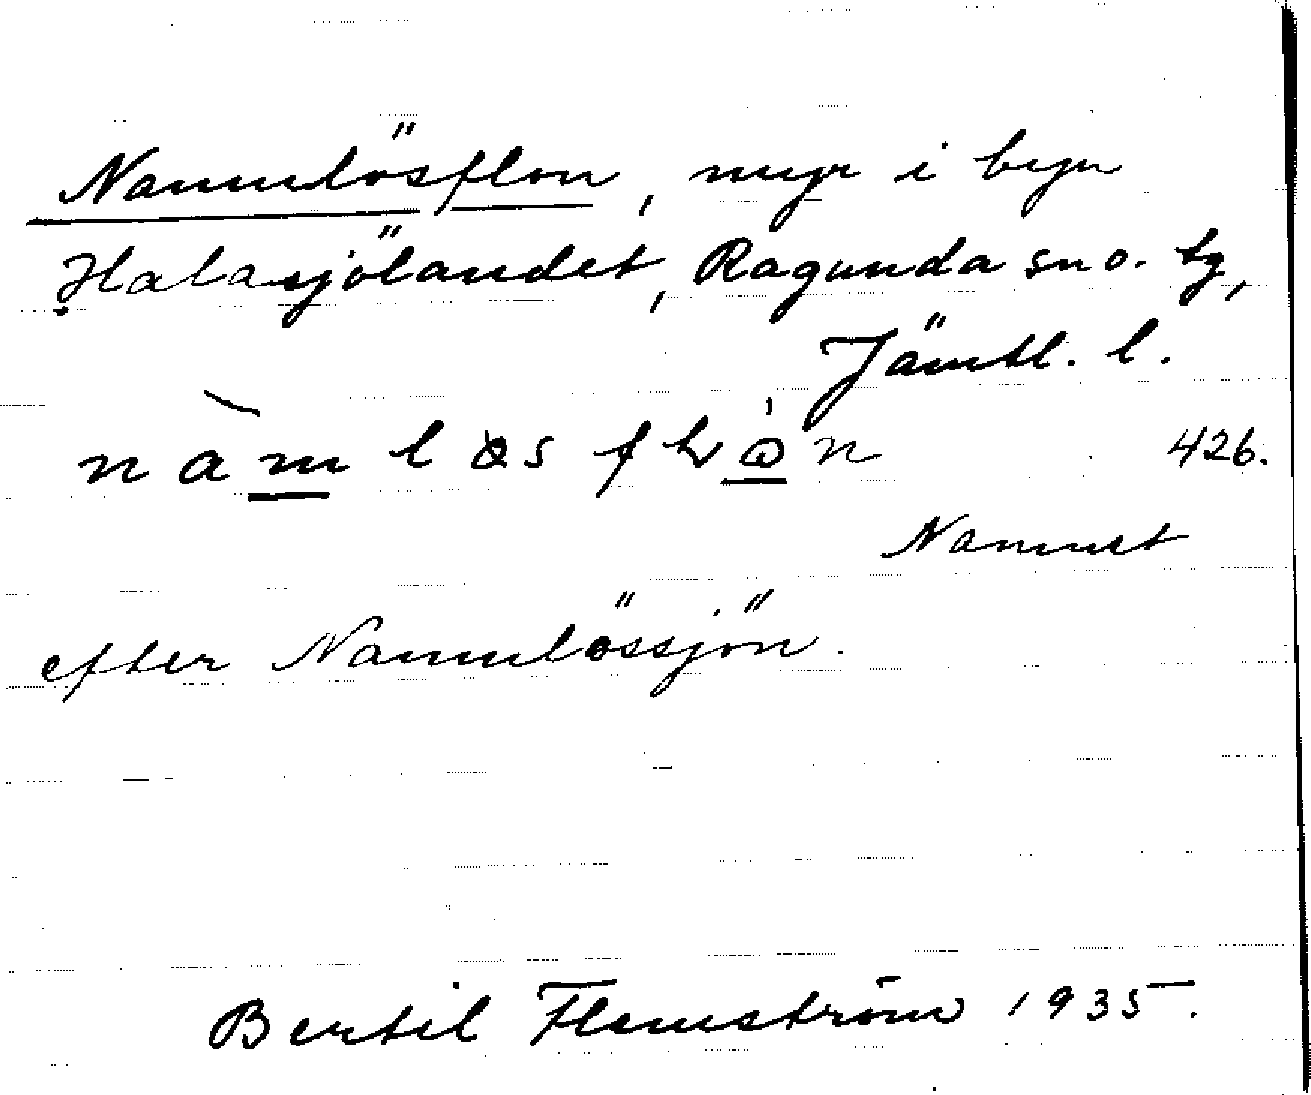 Namnlösflon, myr i byn
Halasjölandet, Ragunda sn o. tg,
Jämtl. l.
426.
Namnet
efter Namnlössjön.
Bertil Flemström 1935.